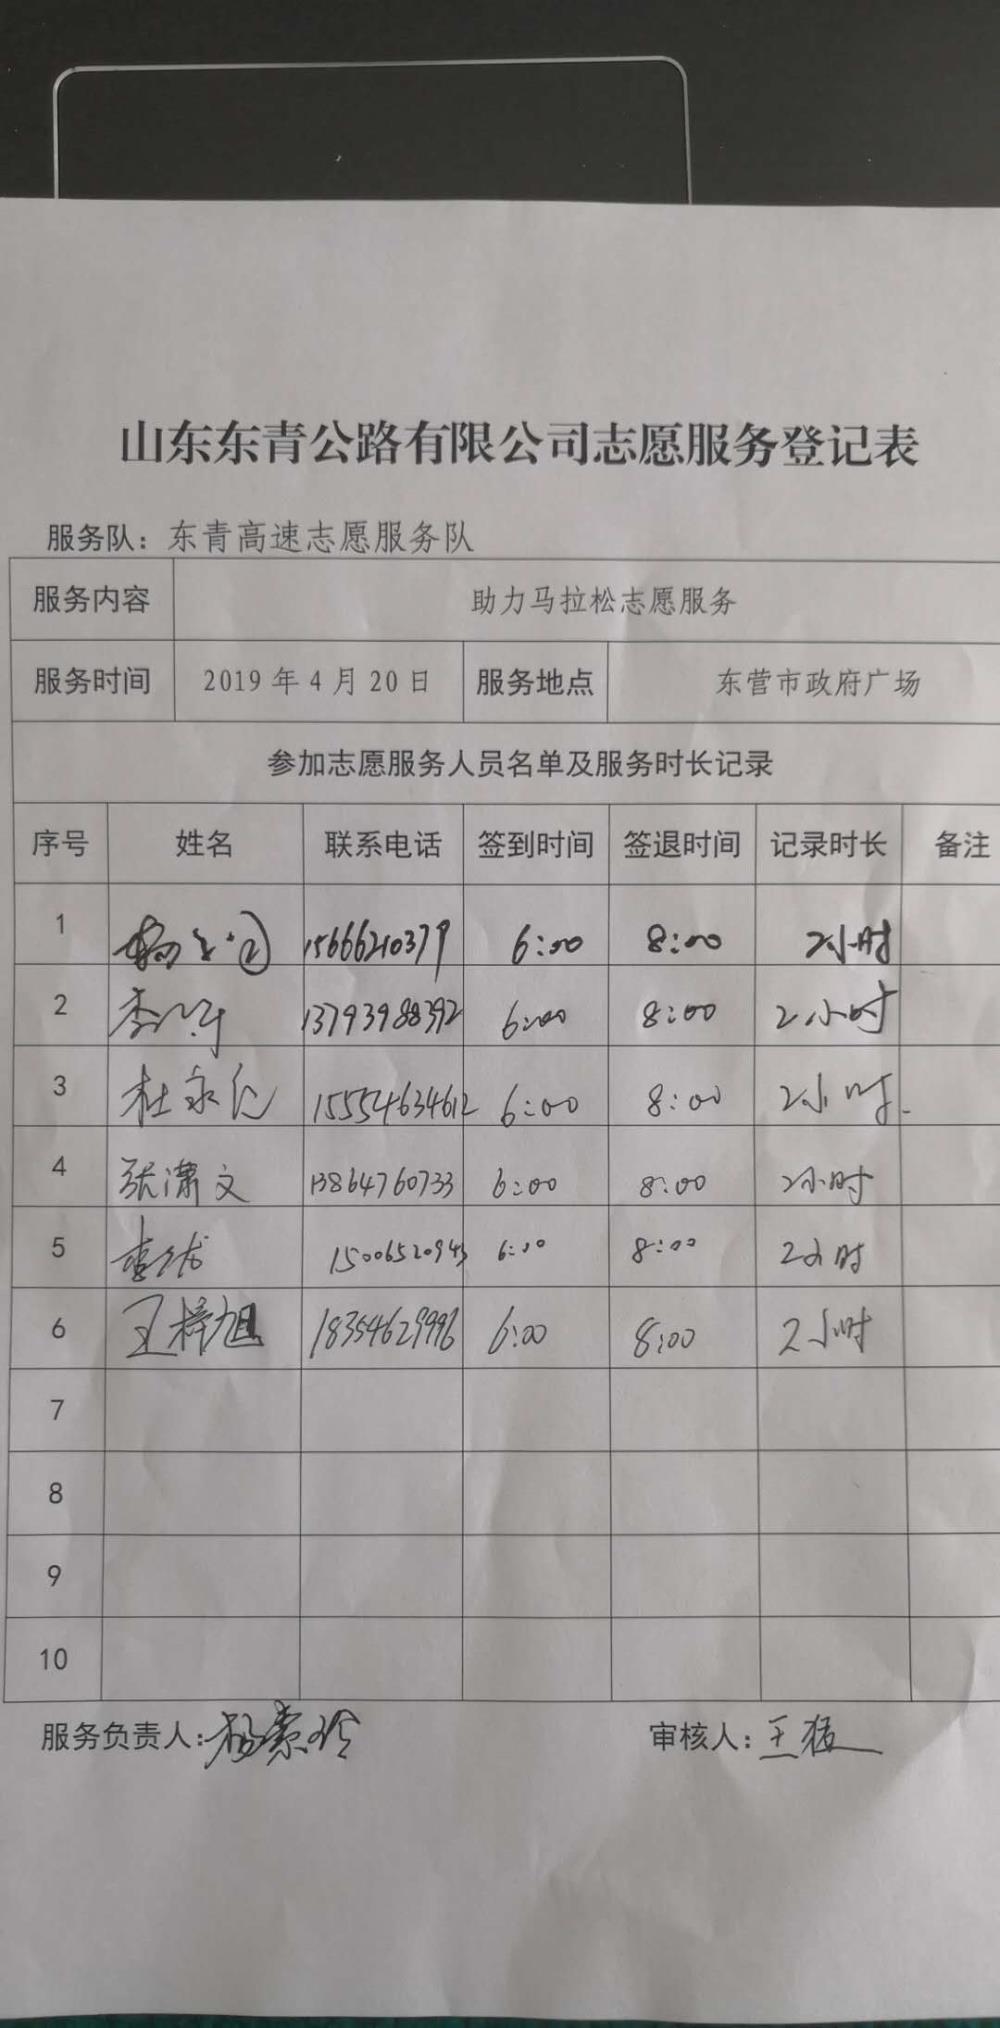 山东东青公路有限公司志愿服务登记表
服务队：东青高速志愿服务队
服务内容 助力马拉松志愿服务
服务时间 2019年4月20日 服务地点 东营市政府广场
参加志愿服务人员名单及服务时长记录
序号 姓名 联系电话 签到时间 签退时间 记录时长 备注
1 15666210379 6:00 8:00 2小时
2 13793988392 6:00 8:00 2小时
3 杜永仁 15554634612 6:00 8:00 2小时
4 张潇文 13864760733 6:00 8:00 2小时
5 15006520943 6:00 8:00 2小时
6 王梓旭 18354629996 6:00 8:00 2小时
7
8
9
10
服务负责人：杨素玲 审核人：王猛